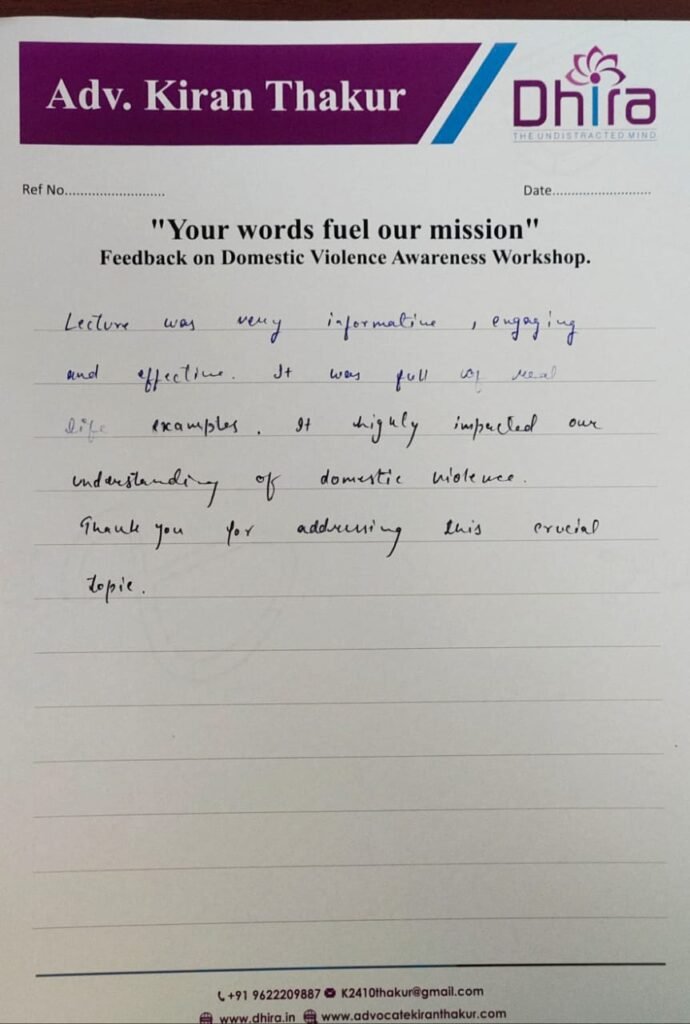 Adv. Kiran Thakur
Dhira
THE UNDISTRACTED MIND
Ref No..........................
Date..........................
"Your words fuel our mission"
Feedback on Domestic Violence Awareness Workshop.
Lecture was very informative , engaging
and effective. It was full of real
life examples. It highly impacted our
understanding of domestic violence.
Thank you for addressing this crucial
topic.
+91 9622209887 K2410thakur@gmail.com
www.dhira.in www.advocatekiranthakur.com